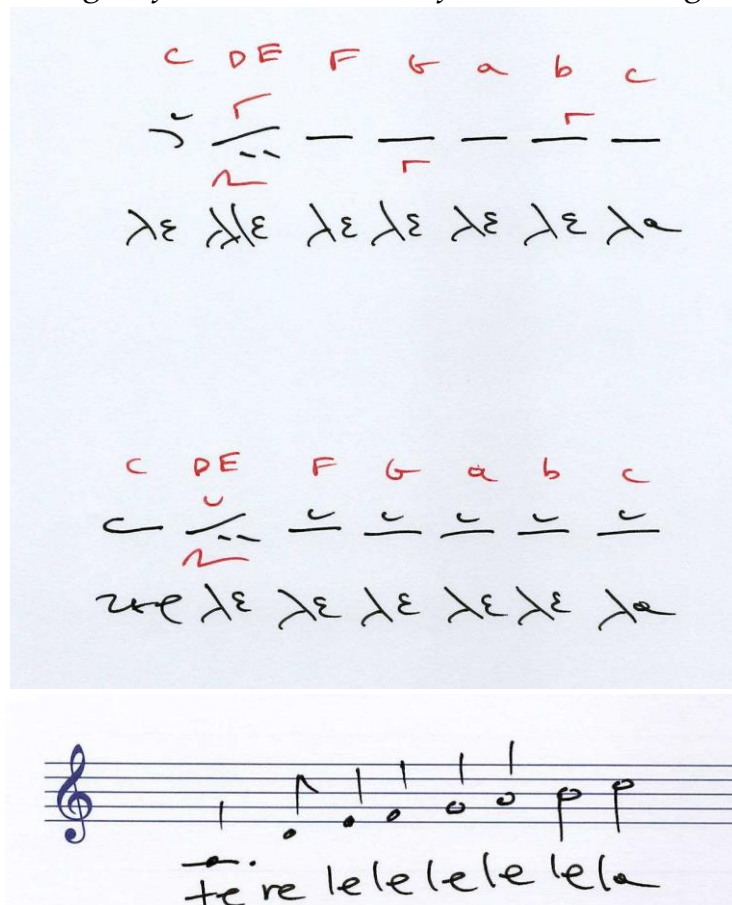 C DE F G a b c
λε λε λε λε λε λα
C DE F G a b c
λε λε λε λε λε λα
te re le le le le le la